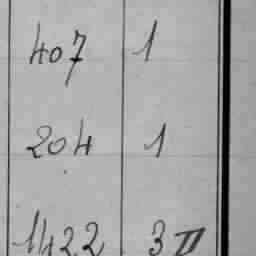 407 1
204 1
1422 3 II